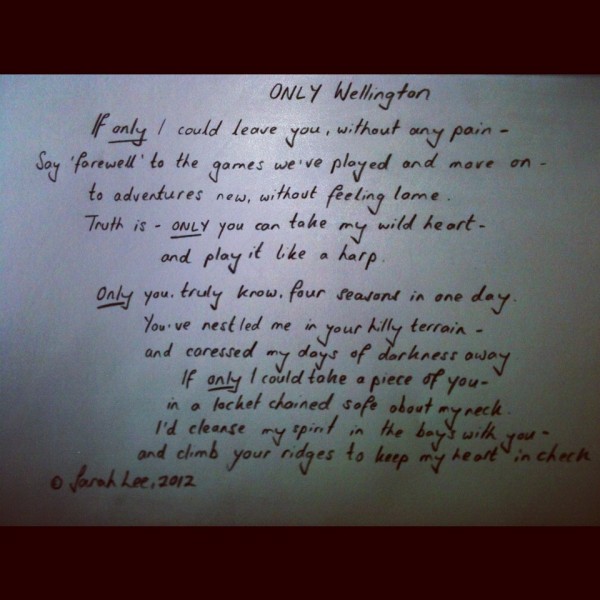 ONLY Wellington
If only I could leave you, without any pain -
Say 'farewell' to the games we've played and move on -
to adventures new, without feeling lame.
Truth is - ONLY you can take my wild heart -
and play it like a harp.
Only you. truly know. four seasons in one day.
You've nestled me in your hilly terrain -
and caressed my days of darkness away
If only I could take a piece of you -
in a locket chained safe about my neck.
I'd cleanse my spirit in the bays with you -
and climb your ridges to keep my heart in check
© Sarah Lee, 2012